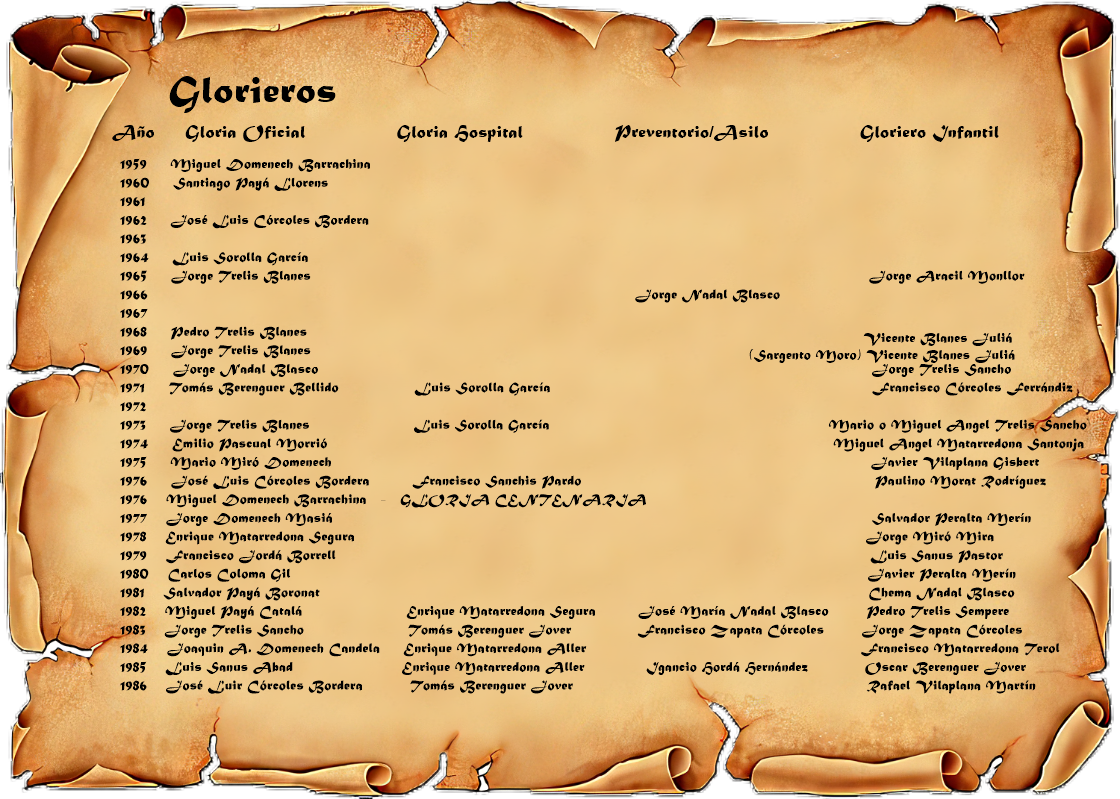 Glorieros
Año Gloria Oficial Gloria Hospital Preventorio/Asilo Gloriero Infantil
1959 Miguel Domenech Barrachina
1960 Santiago Payá Llorens
1961
1962 José Luis Córcoles Bordera
1963
1964 Luis Sorolla García
1965 Jorge Trelis Blanes Jorge Aracil Monllor
1966 Jorge Nadal Blasco
1967
1968 Pedro Trelis Blanes Vicente Blanes Juliá
1969 Jorge Trelis Blanes (Sargento Moro) Vicente Blanes Juliá
1970 Jorge Nadal Blasco Jorge Trelis Sancho
1971 Tomás Berenguer Bellido Luis Sorolla García Francisco Córcoles Ferrándiz
1972
1973 Jorge Trelis Blanes Luis Sorolla García Mario o Miguel Angel Trelis Sancho
1974 Emilio Pascual Morrió Miguel Angel Matarredona Santonja
1975 Mario Miró Domenech Javier Vilaplana Gisbert
1976 José Luis Córcoles Bordera Francisco Sanchis Pardo Paulino Morat Rodríguez
1976 Miguel Domenech Barrachina - GLORIA CENTENARIA
1977 Jorge Domenech Masiá Salvador Peralta Merín
1978 Enrique Matarredona Segura Jorge Miró Mira
1979 Francisco Jordá Borrell Luis Sanus Pastor
1980 Carlos Coloma Gil Javier Peralta Merín
1981 Salvador Payá Boronat Chema Nadal Blasco
1982 Miguel Payá Catalá Enrique Matarredona Segura José María Nadal Blasco Pedro Trelis Sempere
1983 Jorge Trelis Sancho Tomás Berenguer Jover Francisco Zapata Córcoles Jorge Zapata Córcoles
1984 Joaquin A. Domenech Candela Enrique Matarredona Aller Francisco Matarredona Terol
1985 Luis Sanus Abad Enrique Matarredona Aller Igancio Hordá Hernández Oscar Berenguer Jover
1986 José Luir Córcoles Bordera Tomás Berenguer Jover Rafael Vilaplana Martín